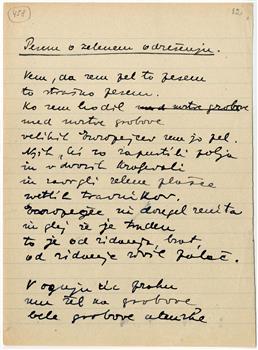 458
Pesem o zelenem odrešenju.
Vem, da sem pel to pesem
to strašno pesem.
Ko sem hodil med mrtve grobove
med mrtve grobove
velikih Evropejcev sem jo pel.
Njih, ki so zapustili polja
in v dvorih kraljevali
in zavrgli zelene plašče
svetlih travnikov.
Evropejec ni dosegel zenita
in glej že je truden
to je od zidanja, brat
od zidanja sivih palač.
V ognju
na grobove
bele grobove